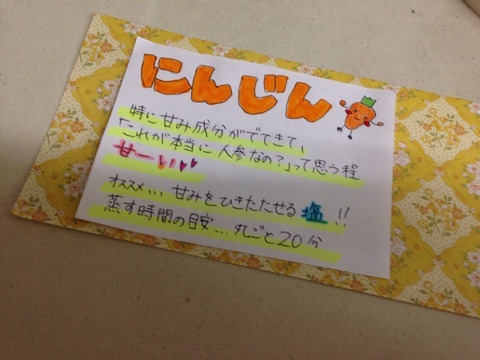 にんじん
特に甘み成分がでてきて、
「これが本当に人参なの?」って思う程
甘ーい♥♥
オススメ... 甘みをひきたたせる 塩!!
蒸す時間の目安...丸ごと20分